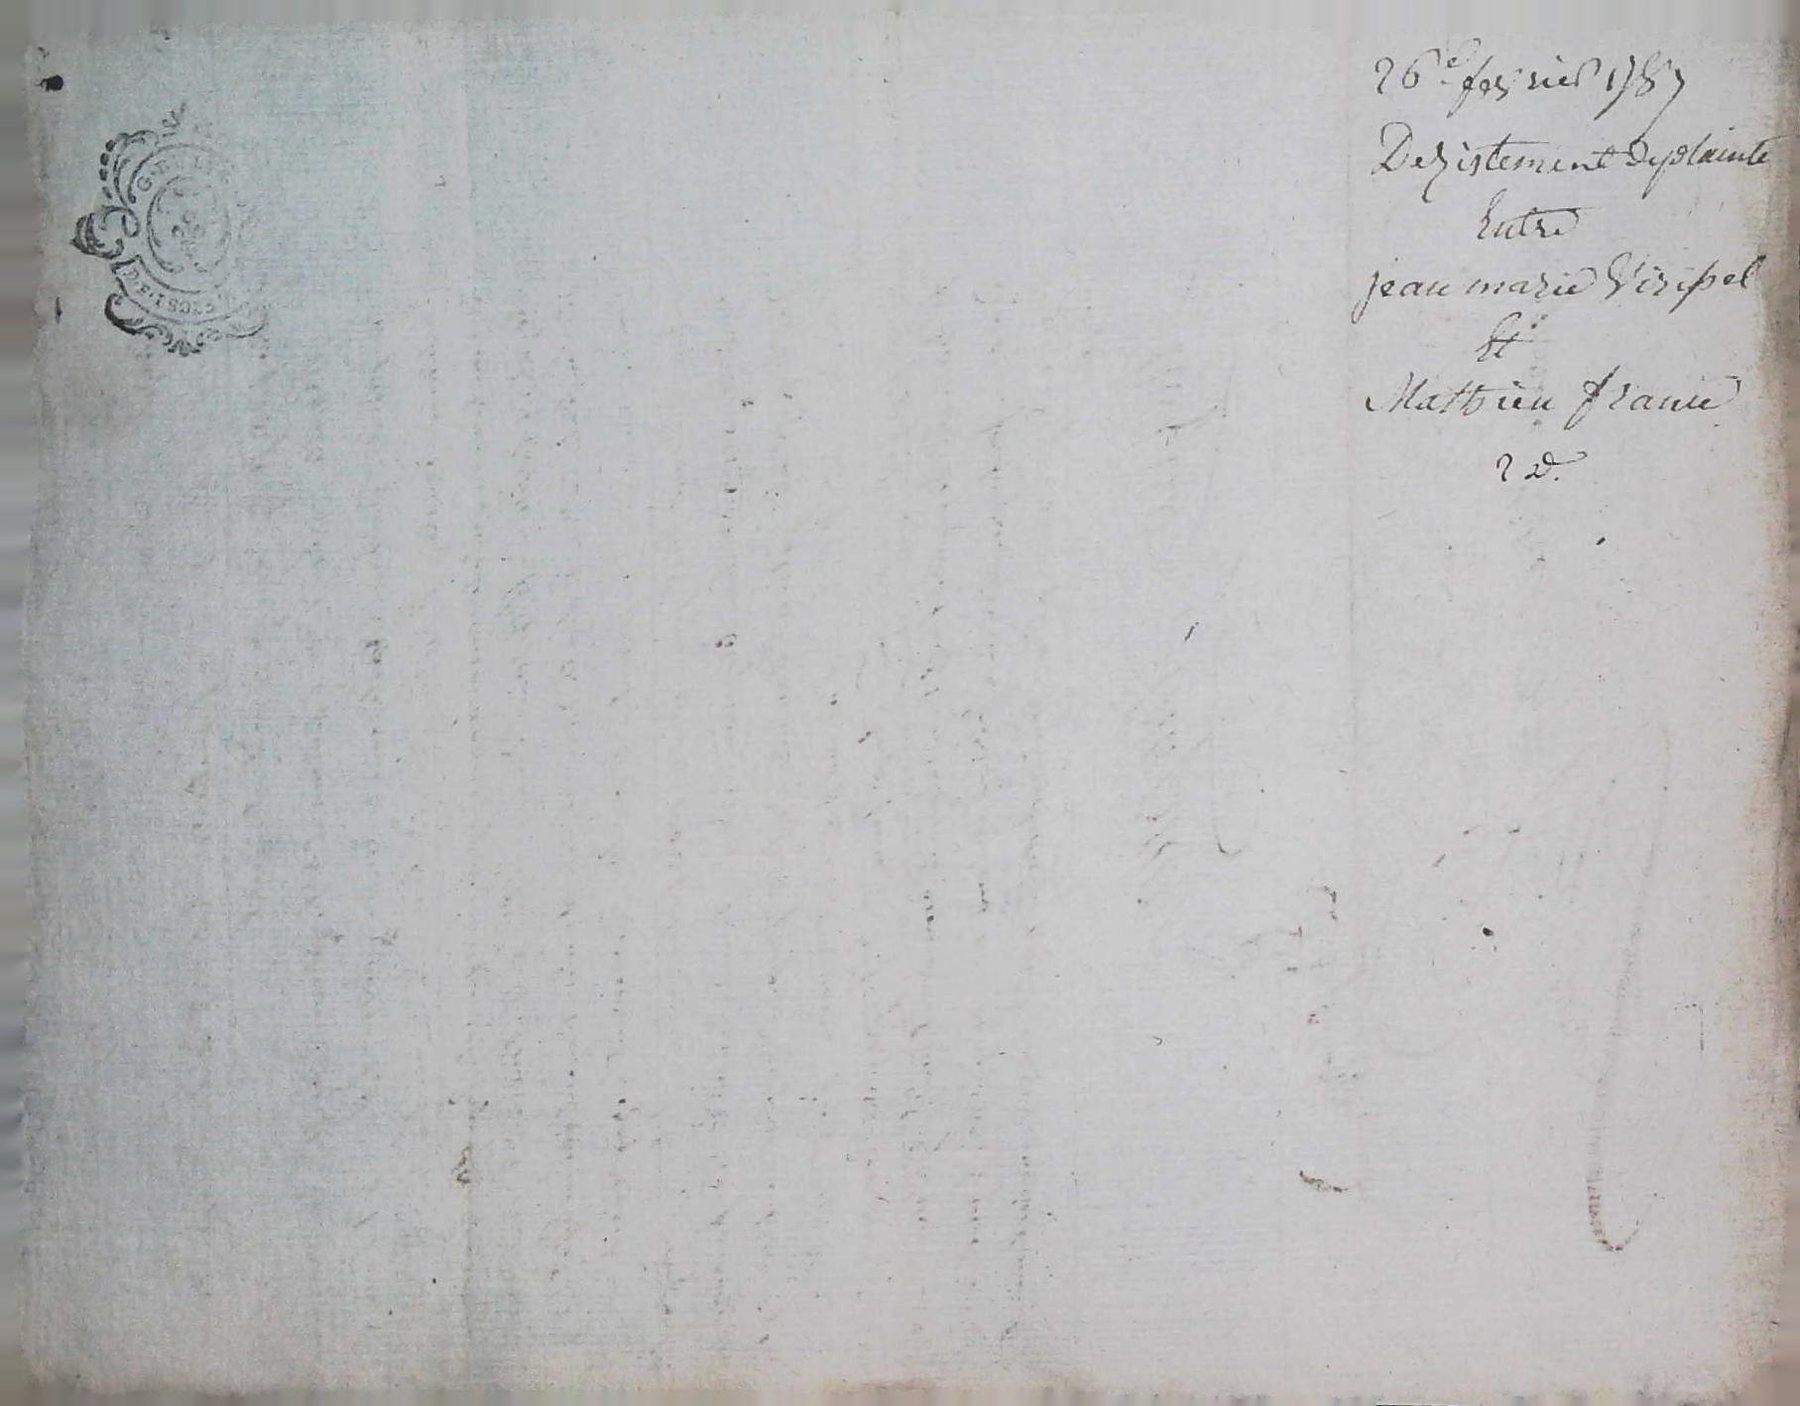 26e fevrier 1787
Dezistement de plainte
Entre
jean marie Viripel
Et
Mathieu franie
2 d.